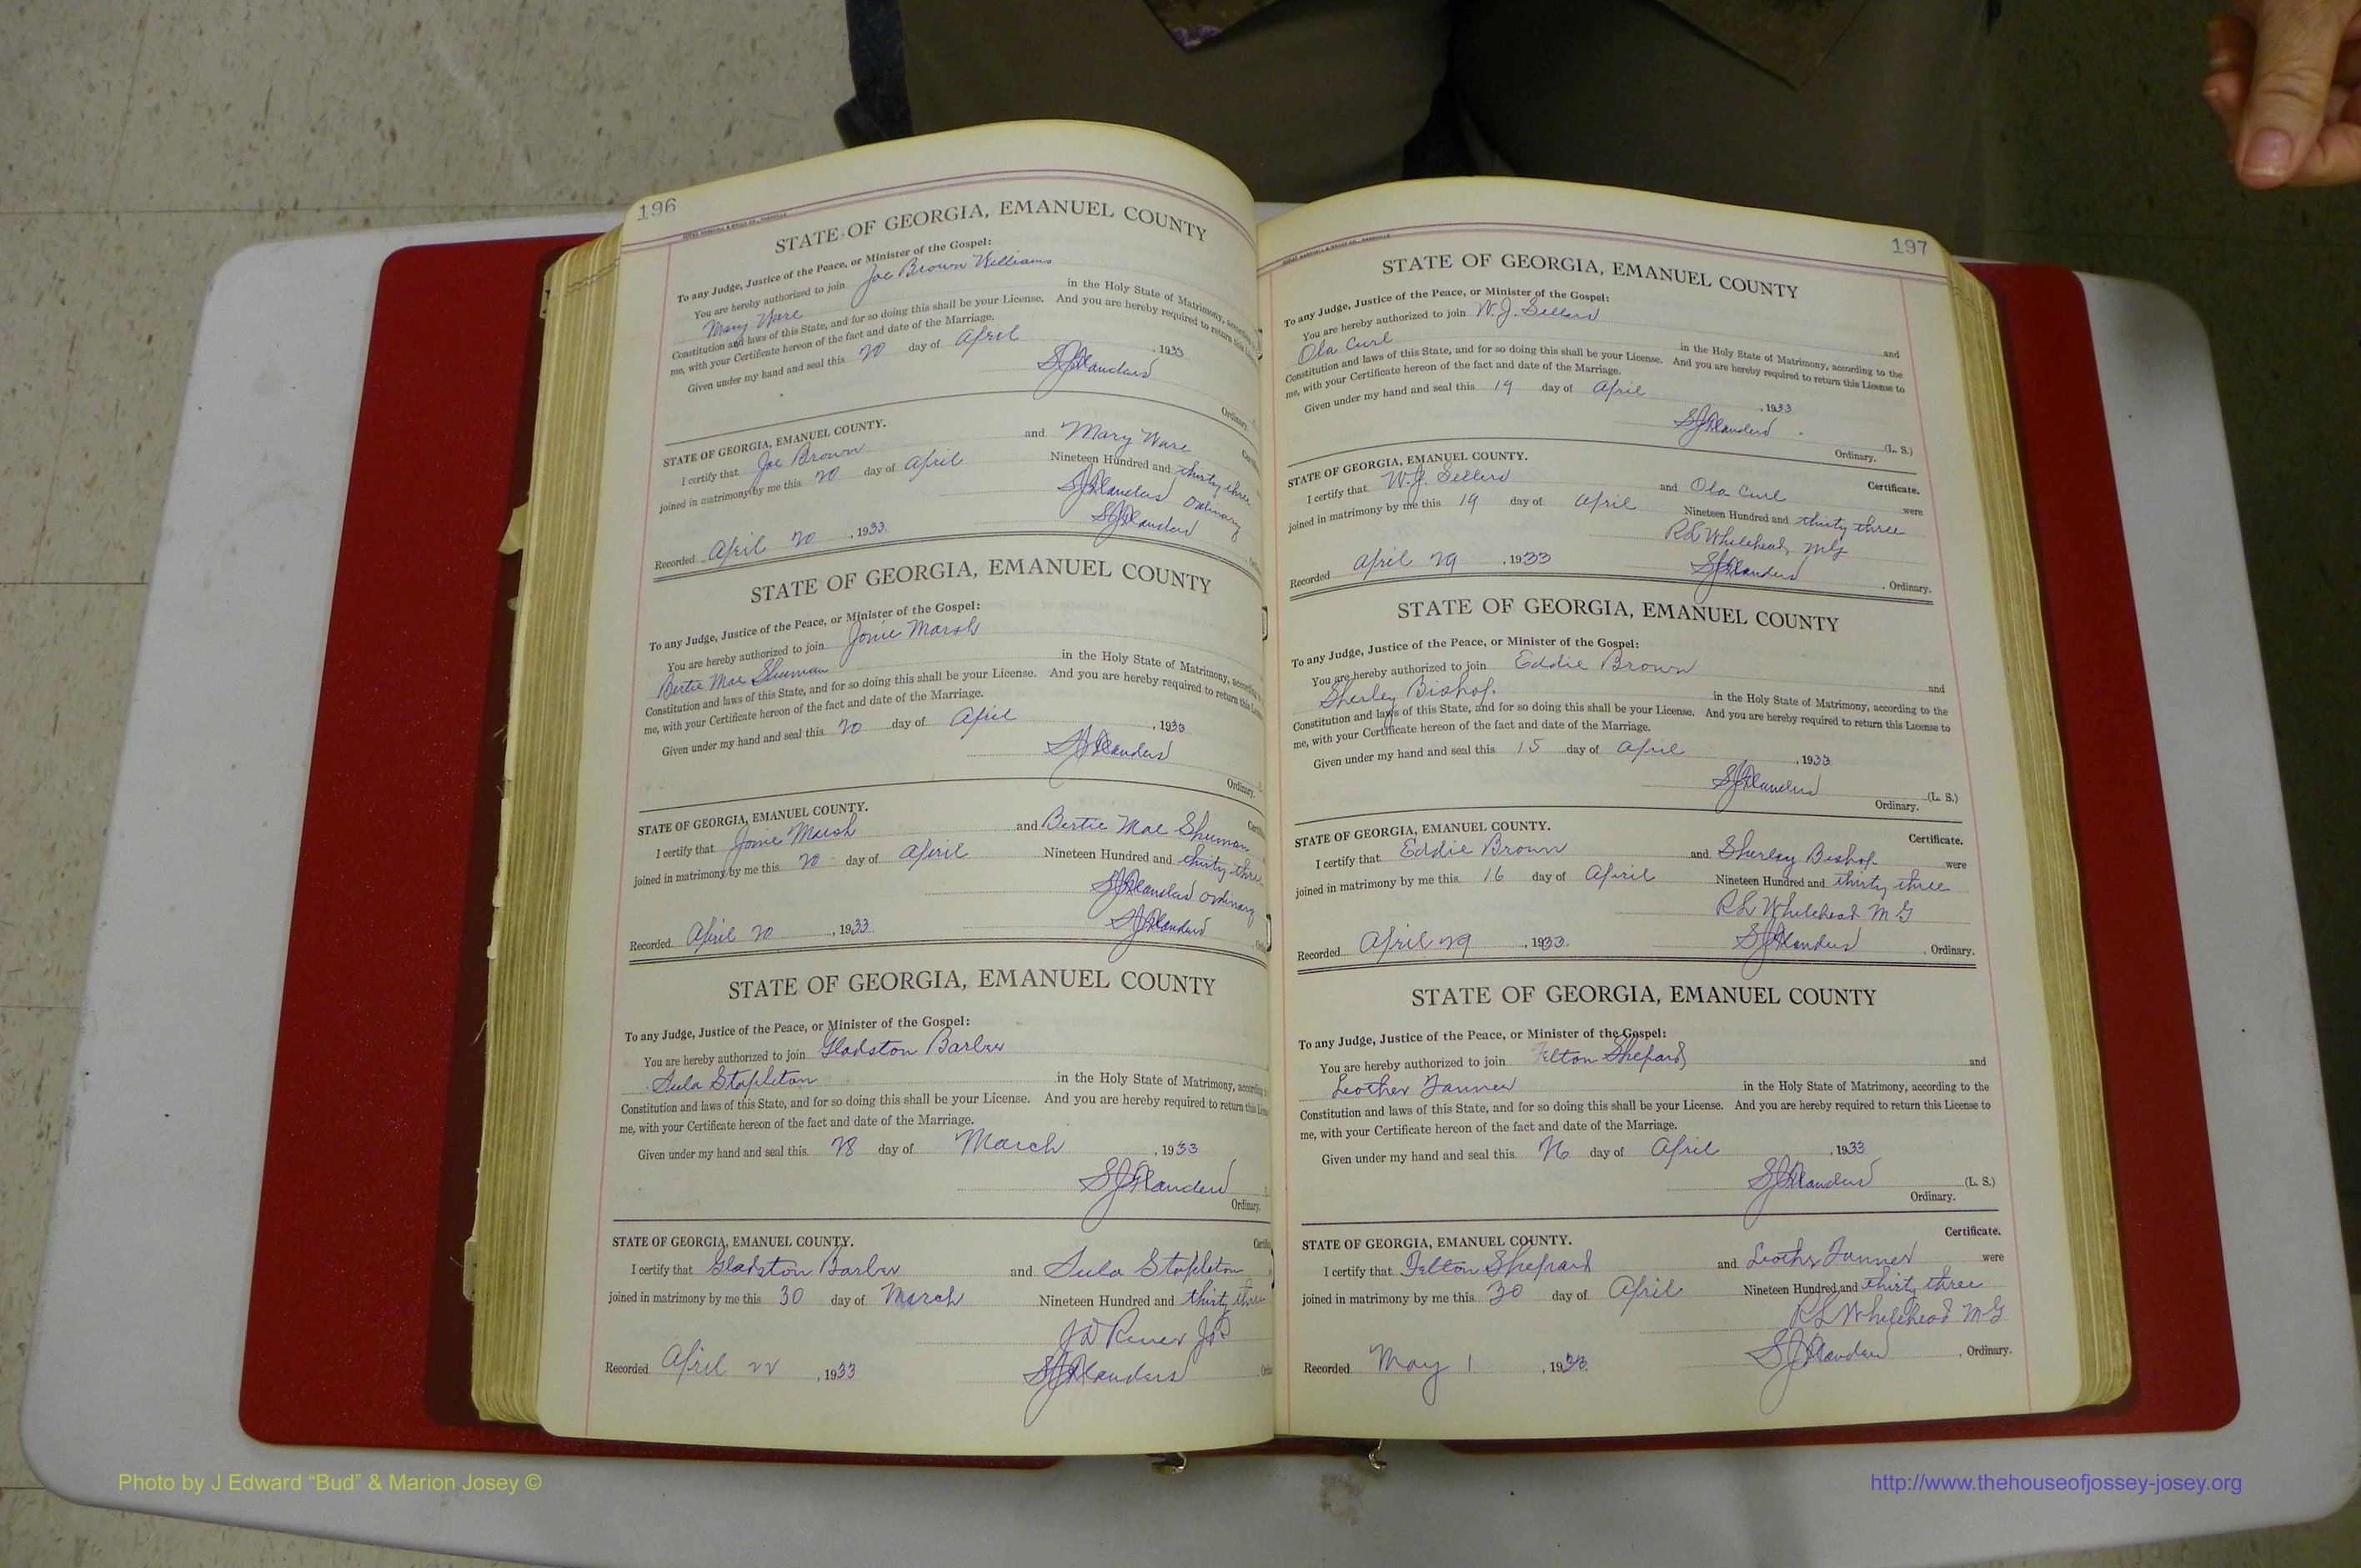 196
STATE OF GEORGIA, EMANUEL COUNTY
To any Judge, Justice of the Peace, or Minister of the Gospel:
You are hereby authorized to join Joe Brown Williams
Mary Ware in the Holy State of Matrimony,
Constitution and laws of this State, and for so doing this shall be your License. And you are hereby required to return this
me, with your Certificate hereon of the fact and date of the Marriage.
Given under my hand and seal this 20 day of April , 1933
S J Flanders
Ordinary.
STATE OF GEORGIA, EMANUEL COUNTY.
I certify that Joe Brown and Mary Ware
joined in matrimony by me this 20 day of April Nineteen Hundred and thirty three
S J Flanders Ordinary
Recorded April 20 , 1933 S J Flanders
STATE OF GEORGIA, EMANUEL COUNTY
To any Judge, Justice of the Peace, or Minister of the Gospel:
You are hereby authorized to join Jonie Marsh
Bertie Mae Shuman in the Holy State of Matrimony,
Constitution and laws of this State, and for so doing this shall be your License. And you are hereby required to return this
me, with your Certificate hereon of the fact and date of the Marriage.
Given under my hand and seal this 20 day of April , 1933
S J Flanders
Ordinary.
STATE OF GEORGIA, EMANUEL COUNTY.
I certify that Jonie Marsh and Bertie Mae Shuman
joined in matrimony by me this 20 day of April Nineteen Hundred and thirty three
S J Flanders ordinary
Recorded April 20 , 1933 S J Flanders
STATE OF GEORGIA, EMANUEL COUNTY
To any Judge, Justice of the Peace, or Minister of the Gospel:
You are hereby authorized to join Gladston Barber
Sula Stapleton in the Holy State of Matrimony,
Constitution and laws of this State, and for so doing this shall be your License. And you are hereby required to return this
me, with your Certificate hereon of the fact and date of the Marriage.
Given under my hand and seal this 28 day of March , 1933
S J Flanders
Ordinary.
STATE OF GEORGIA, EMANUEL COUNTY.
I certify that Gladston Barber and Sula Stapleton
joined in matrimony by me this 30 day of March Nineteen Hundred and thirty three
J P
Recorded April 22 , 1933 S J Flanders
197
STATE OF GEORGIA, EMANUEL COUNTY
To any Judge, Justice of the Peace, or Minister of the Gospel:
You are hereby authorized to join W. J. Sellers and
Ola Curl in the Holy State of Matrimony, according to the
Constitution and laws of this State, and for so doing this shall be your License. And you are hereby required to return this License to
me, with your Certificate hereon of the fact and date of the Marriage.
Given under my hand and seal this 19 day of April , 1933
S J Flanders (L. S.)
Ordinary.
STATE OF GEORGIA, EMANUEL COUNTY. Certificate.
I certify that W. J. Sellers and Ola Curl were
joined in matrimony by me this 19 day of April Nineteen Hundred and thirty three
R L Whitehead, M G
Recorded April 29 , 1933 S J Flanders , Ordinary.
STATE OF GEORGIA, EMANUEL COUNTY
To any Judge, Justice of the Peace, or Minister of the Gospel:
You are hereby authorized to join Eddie Brown and
Sherley Bishop. in the Holy State of Matrimony, according to the
Constitution and laws of this State, and for so doing this shall be your License. And you are hereby required to return this License to
me, with your Certificate hereon of the fact and date of the Marriage.
Given under my hand and seal this 15 day of April , 1933
S J Flanders (L. S.)
Ordinary.
STATE OF GEORGIA, EMANUEL COUNTY. Certificate.
I certify that Eddie Brown and Sherley Bishop were
joined in matrimony by me this 16 day of April Nineteen Hundred and thirty three
R L Whitehead M G
Recorded April 29 , 1933. S J Flanders , Ordinary.
STATE OF GEORGIA, EMANUEL COUNTY
To any Judge, Justice of the Peace, or Minister of the Gospel:
You are hereby authorized to join Felton Shepard and
Leother Tanner in the Holy State of Matrimony, according to the
Constitution and laws of this State, and for so doing this shall be your License. And you are hereby required to return this License to
me, with your Certificate hereon of the fact and date of the Marriage.
Given under my hand and seal this 26 day of April , 1933
S J Flanders (L. S.)
Ordinary.
STATE OF GEORGIA, EMANUEL COUNTY. Certificate.
I certify that Felton Shepard and Leother Tanner were
joined in matrimony by me this 30 day of April Nineteen Hundred and thirty three
R L Whitehead M G
Recorded May 1 , 1933. S J Flanders , Ordinary.
Photo by J Edward “Bud” & Marion Josey ©
http://www.thehouseofjossey-josey.org